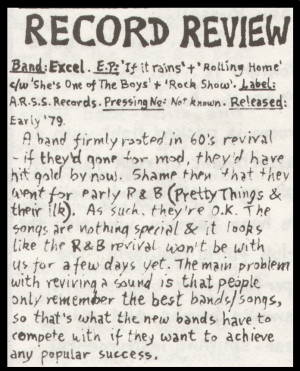 RECORD REVIEW
Band: Excel. E.P: 'If it rains' + 'Rolling Home'
c/w 'She's One of The Boys' + 'Rock Show'. Label:
A.R.S.S. Records. Pressing No: Not known. Released:
Early '79.
A band firmly rooted in 60's revival
- if they'd gone for mod, they'd have
hit gold by now. Shame then that they
went for early R & B (Pretty Things &
their ilk). As such, they're O.K. The
songs are nothing special & it looks
like the R&B revival won't be with
us for a few days yet. The main problem
with reviving a sound is that people
only remember the best bands/songs,
so that's what the new bands have to
compete with if they want to achieve
any popular success.